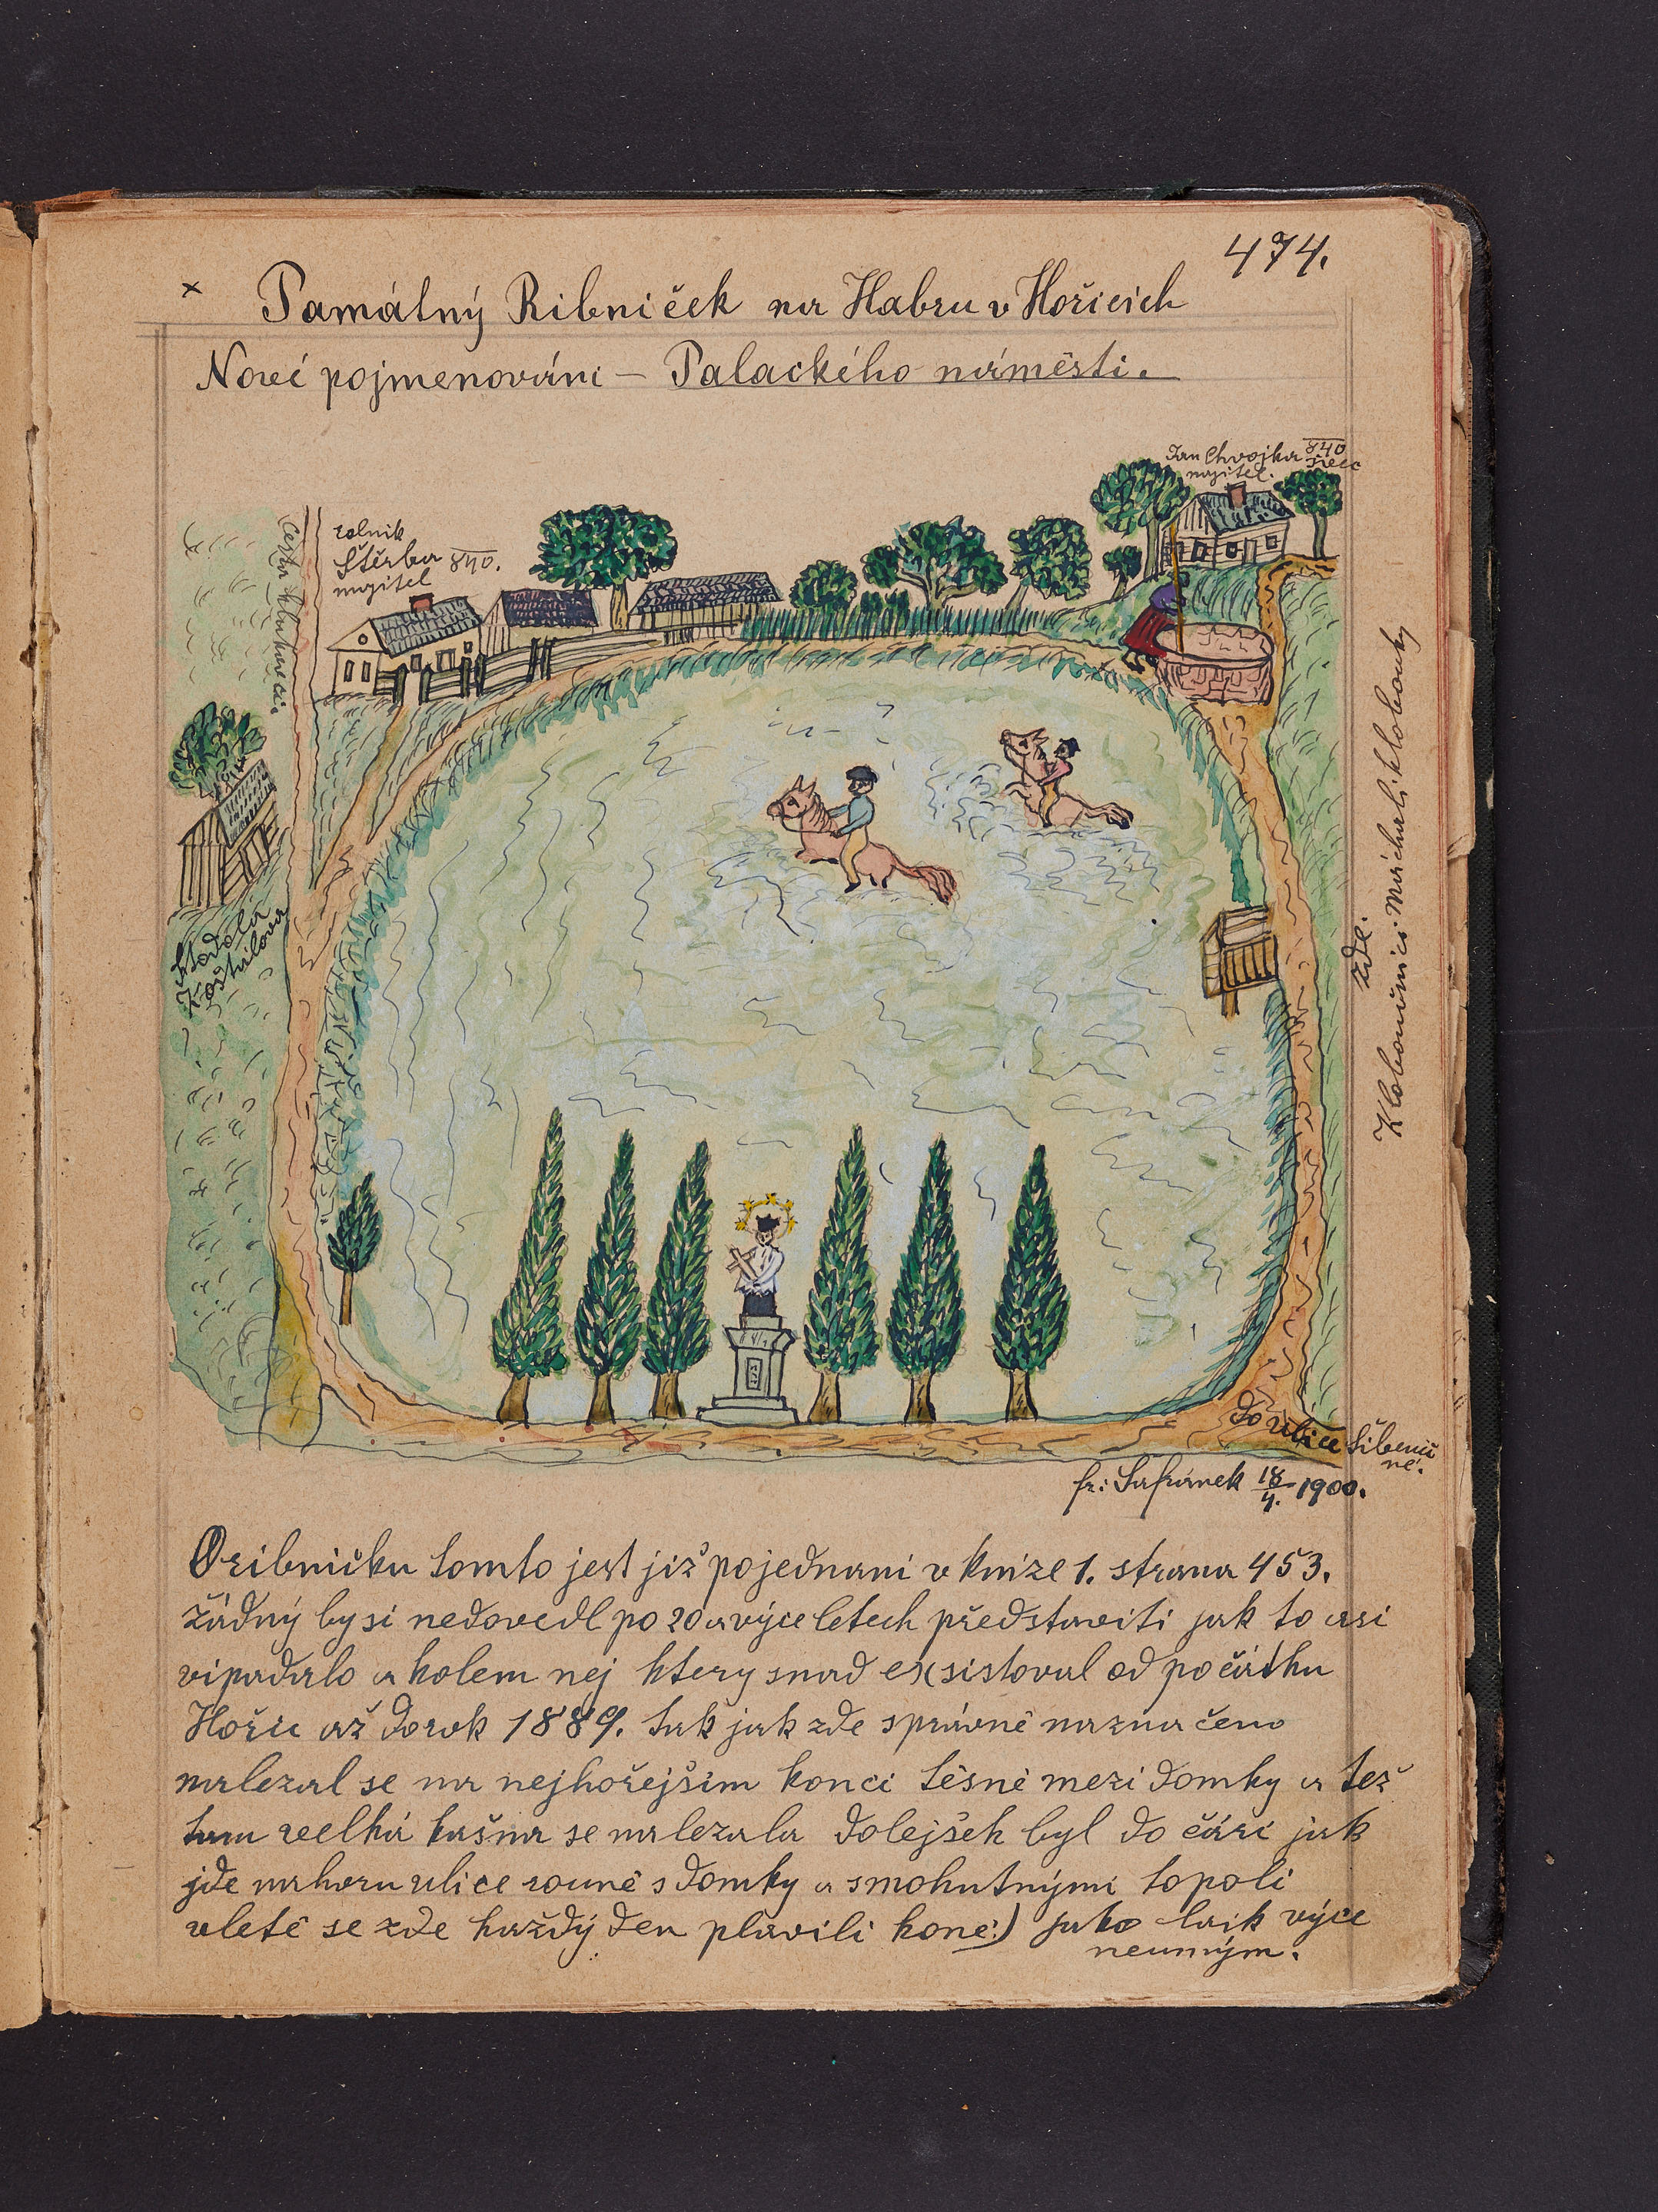 474.
× Památný Ribniček na Habru v Hořicich
Nové pojmenováni — Palackého náměsti.
Jan Chvojka 840
majitel.
rolnik
Štěrba 840.
majitel
Cesta
Stodola
Koštálova
zde.
Kloboučnici máchali klobouky
Do ulice Šibenič
né.
fr: Šafránek 18/4. 1900.
O ribničku tomto jest již pojednani v knize 1. strana 453.
žádný by si nedovedl po 20 a výce letech představiti jak to asi
vipadalo a kolem nej ktery snad exsistoval od počátku
Hořic až do rok 1889. tak jak zde správně naznačeno
nalezal se na nejhořejšim konci těsně mezi domky a též
tam velká kašna se nalezala dolejšek byl do čári jak
jde nahoru ulice rovně s domky a smohutnými topoli
v letě se zde každý den plavili koně:) jako laik výce
neumým.